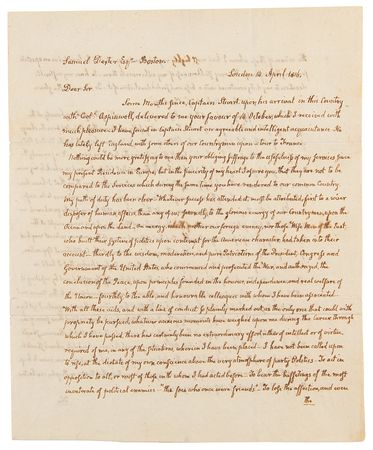 Samuel Dexter Esqr. Boston.
London 14 April 1816.
Dear Sir.
Some Months since, Captain Stuart, upon his arrival in this Country
with Coll. Aspinwall, delivered to me your favour of 14 October, which I received with
much pleasure. I have found in Captain Stuart an agreeable and intelligent acquaintance. He
has lately left England, with some others of our Countrymen upon a tour to France.
Nothing could be more gratifying to me than your obliging suffrage to the usefulness of my services since
my present Residence in Europe; but in the sincerity of my heart I assure you, that they are not to be
compared to the services which during the same time you have rendered to our common Country.
My path of duty has been clear. Whatever success has attended it, must be attributed, first to a wiser
disposer of human affairs than any of us; secondly to the glorious energy of our Countrymen, upon the
Ocean and upon the Land. An energy, which neither our foreign enemy, nor those Wise Men of the East,
who built their system of politics upon contempt for the American character, had taken into their
account. thirdly to the wisdom, moderation, and pure Patriotism of the President, Congress and
Government of the United States, who commenced and prosecuted the War, and authorized, the
conclusion of the Peace, upon principles founded in the honour, independence, and real welfare of
the Union. fourthly to the able, and honourable colleagues with whom I have been associated.
With all these aids, and with a line of conduct so plainly marked out as the only one that could with
propriety be pursued, whatever success may have been wasted upon me during the career through
which I have passed, there has certainly been no extraordinary effort either of intellect or of virtue,
required of me, in any of the situations wherein I have been placed. I have not been called upon
to rise, at the dictate of my own conscience above the very atmosphere of party Politics. To act in
opposition to all, or most of those with whom I had acted before. To bear the buffetings of the most
inveterate of political enemies "the foes who once were friends". To lose the affection, and even
the